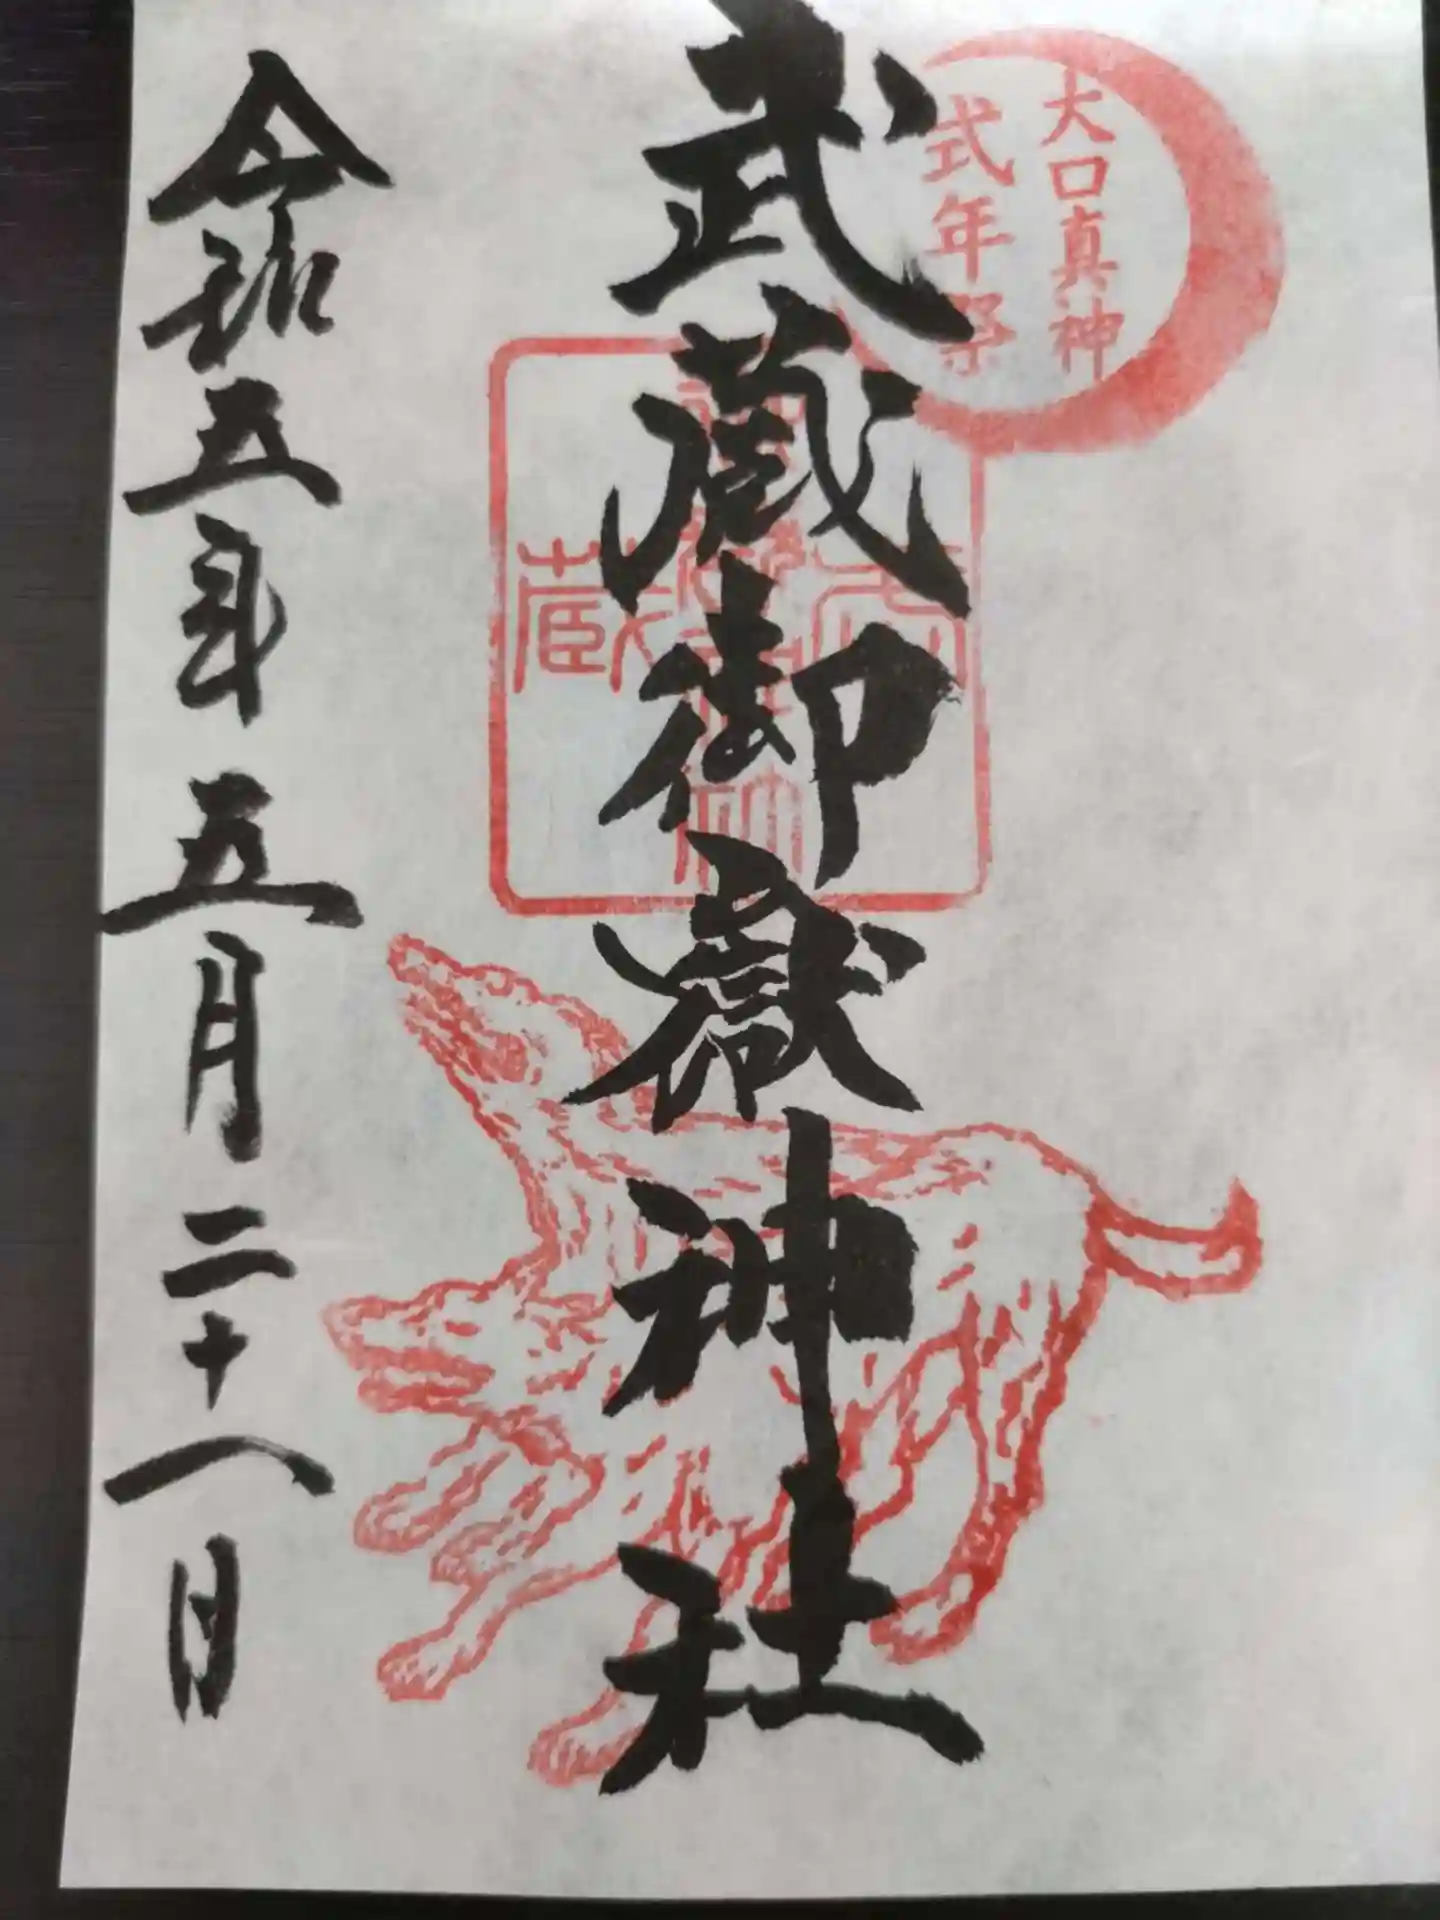 大口真神
式年祭
武蔵御嶽神社
令和五年五月二十八日